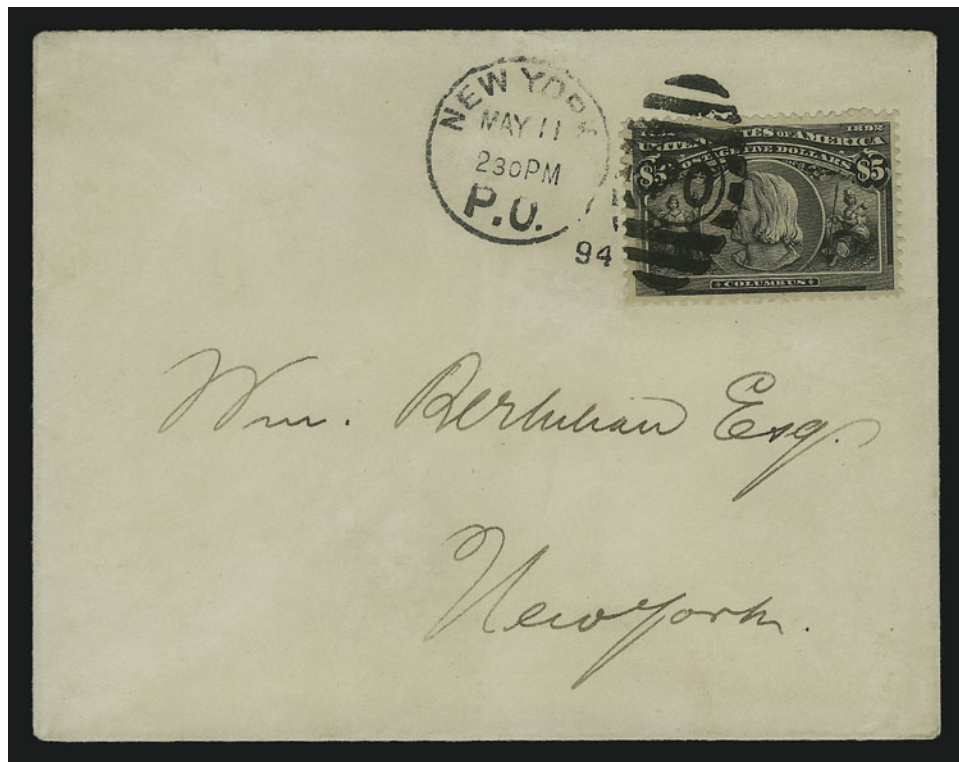 NEW YORK
MAY 11
230PM
P.O.
94
1892
UNITED STATES OF AMERICA
POSTAGE FIVE DOLLARS
$5 $5
COLUMBUS
Wm. Esq.
New York.